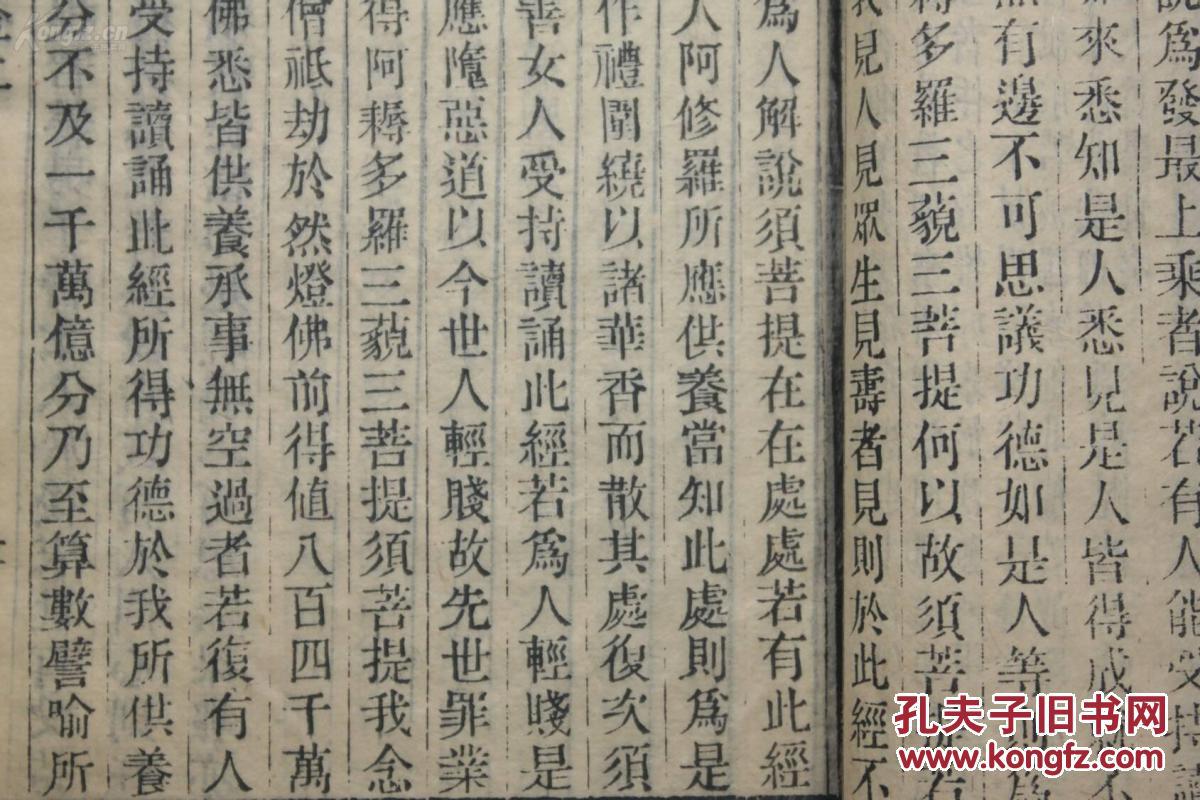 說為發最上乘者說若有人能受持讀
來悉知是人悉見是人皆得成
有邊不可思議功德如是人等
得多羅三藐三菩提何以故須菩
我見人見眾生見壽者見則於此經不
為人解說須菩提在在處處若有此經
人阿修羅所應供養當知此處則為是
作禮圍繞以諸華香而散其處復次須
善女人受持讀誦此經若為人輕賤是
應墮惡道以今世人輕賤故先世罪業
得阿耨多羅三藐三菩提須菩提我念
僧祇劫於然燈佛前得值八百四千萬
佛悉皆供養承事無空過者若復有人
受持讀誦此經所得功德於我所供養
分不及一千萬億分乃至算數譬喻所
Kongfz.cn
孔夫子旧书网
www.kongfz.com